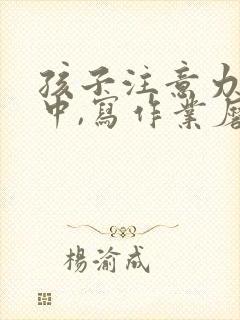 孩子注意力
中,寫作業
楊渝成